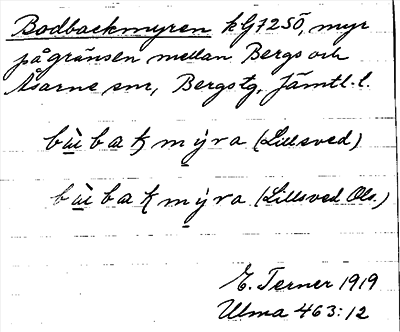 Bodbackmyren kG7250, myr
på gränsen mellan Bergs och
Åsarne snr, Bergs tg, Jämtl. l.
(Lillsved)
(Lillsved Ols.)
E. Terner 1919
Ulma 463:12